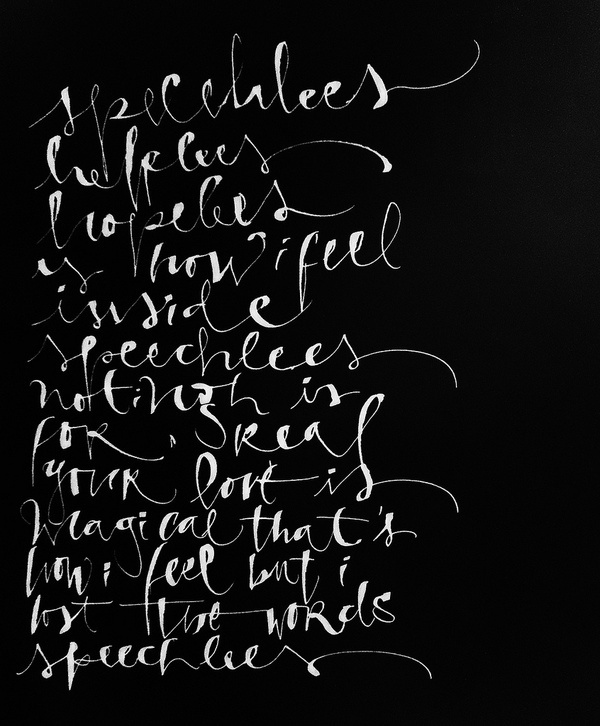 speechlees
helplees
hopelees
is how i feel
inside
speechlees
notingh is
for, Skeal
your love is
magical that's
how i feel but i
lost the words
speechlees